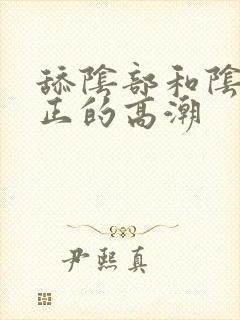 舔陰部和陰
正的高潮
尹熙真